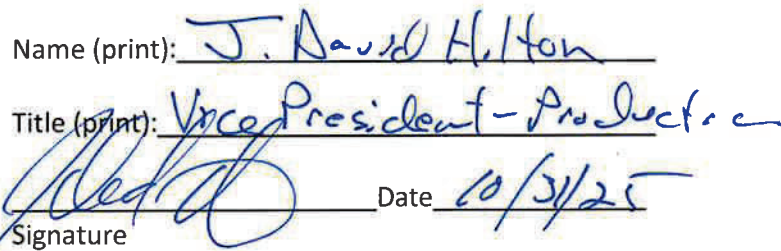 Name (print): J. David Hilton
Title (print): Vice President - Production
Date 10/31/25
Signature